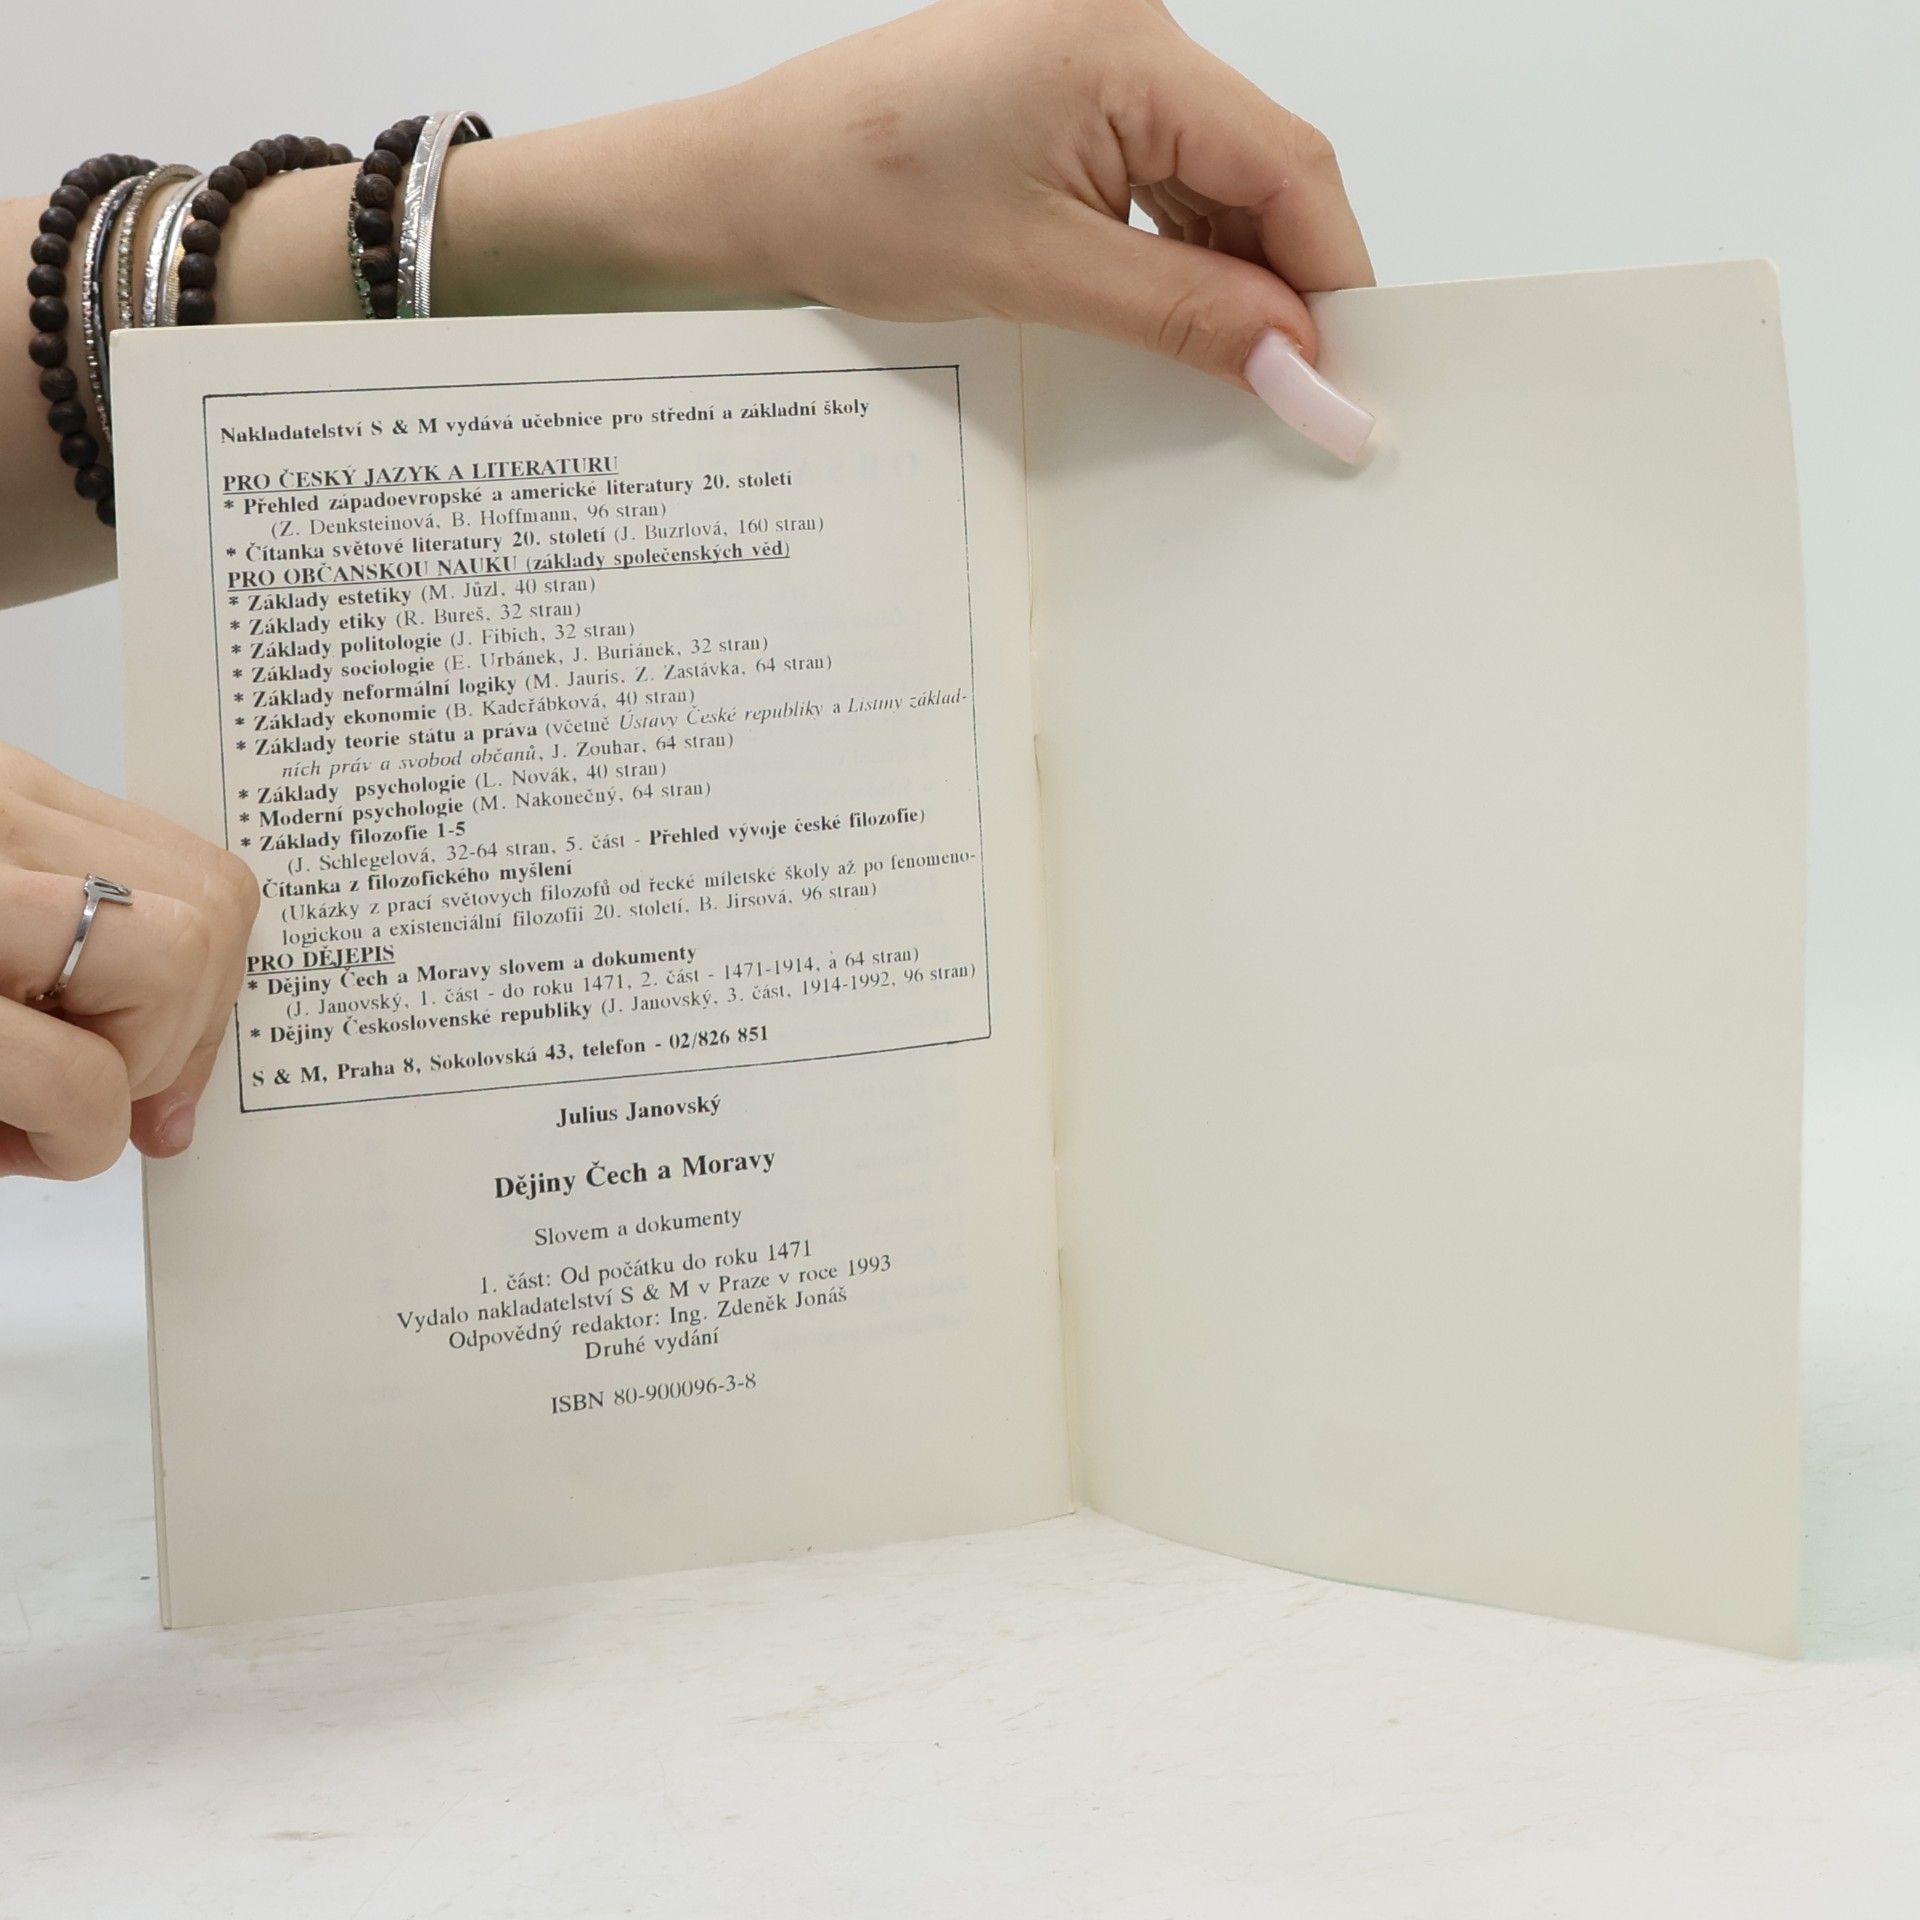 Nakladatelství S & M vydává učebnice pro střední a základní školy
PRO ČESKÝ JAZYK A LITERATURU
* Přehled západoevropské a americké literatury 20. století
(Z. Denksteinová, B. Hoffmann, 96 stran)
* Čítanka světové literatury 20. století (J. Buzrlová, 160 stran)
PRO OBČANSKOU NAUKU (základy společenských věd)
* Základy estetiky (M. Jůzl, 40 stran)
* Základy etiky (R. Bureš, 32 stran)
* Základy politologie (J. Fibich, 32 stran)
* Základy sociologie (E. Urbánek, J. Buriánek, 32 stran)
* Základy neformální logiky (M. Jauris, Z. Zastávka, 64 stran)
* Základy ekonomie (B. Kadeřábková, 40 stran)
* Základy teorie státu a práva (včetně Ústavy České republiky a Listiny základ-
ních práv a svobod občanů, J. Zouhar, 64 stran)
* Základy psychologie (L. Novák, 40 stran)
* Moderní psychologie (M. Nakonečný, 64 stran)
* Základy filozofie 1-5
(J. Schlegelová, 32-64 stran, 5. část - Přehled vývoje české filozofie)
Čítanka z filozofického myšlení
(Ukázky z prací světových filozofů od řecké míletské školy až po fenomeno-
logickou a existenciální filozofii 20. století, B. Jirsová, 96 stran)
PRO DĚJEPIS
* Dějiny Čech a Moravy slovem a dokumenty
(J. Janovský, 1. část - do roku 1471, 2. část - 1471-1914, à 64 stran)
* Dějiny Československé republiky (J. Janovský, 3. část, 1914-1992, 96 stran)
S & M, Praha 8, Sokolovská 43, telefon - 02/826 851
Julius Janovský
Dějiny Čech a Moravy
Slovem a dokumenty
1. část: Od počátku do roku 1471
Vydalo nakladatelství S & M v Praze v roce 1993
Odpovědný redaktor: Ing. Zdeněk Jonáš
Druhé vydání
ISBN 80-900096-3-8